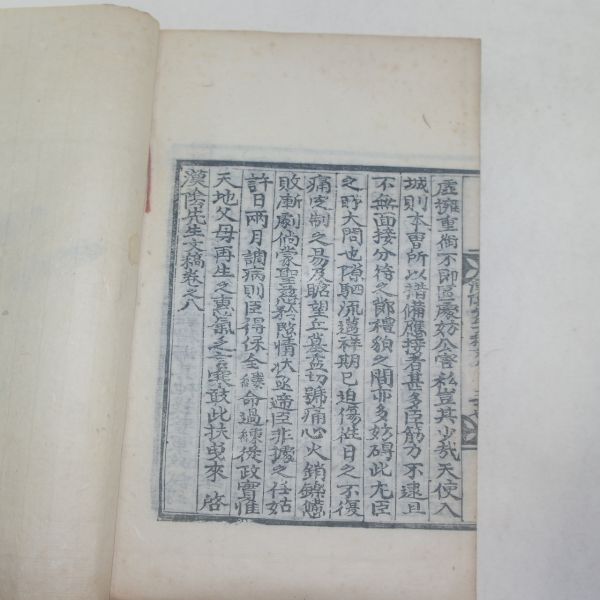 虛擁重銜不卽區處妨公害私豈其少哉天使入
城則本曹所以諧備應接者甚多臣筋力不逮且
不無面接分待之節禮貌之間亦多妨碍此尤臣
之時大悶也隙駟流邁祥期已迫傷往日之不復
痛先制之易及眺望丘墓益切號痛心火銷鑠
敗漸劇倘蒙聖慈矜愍情狀亟遞臣非據之任姑
許日兩月調病則臣得保全縷命過練從政實惟
天地父母再生之惠氣乏言 敢此扶曳來 啓
漢陰先生文稿卷之八